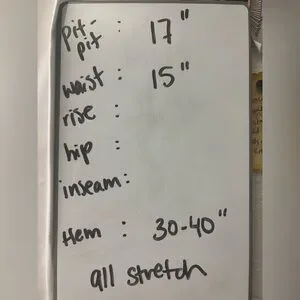 pit-
pit : 17"
waist : 15"
rise :
hip :
inseam:
Hem : 30-40"
all stretch